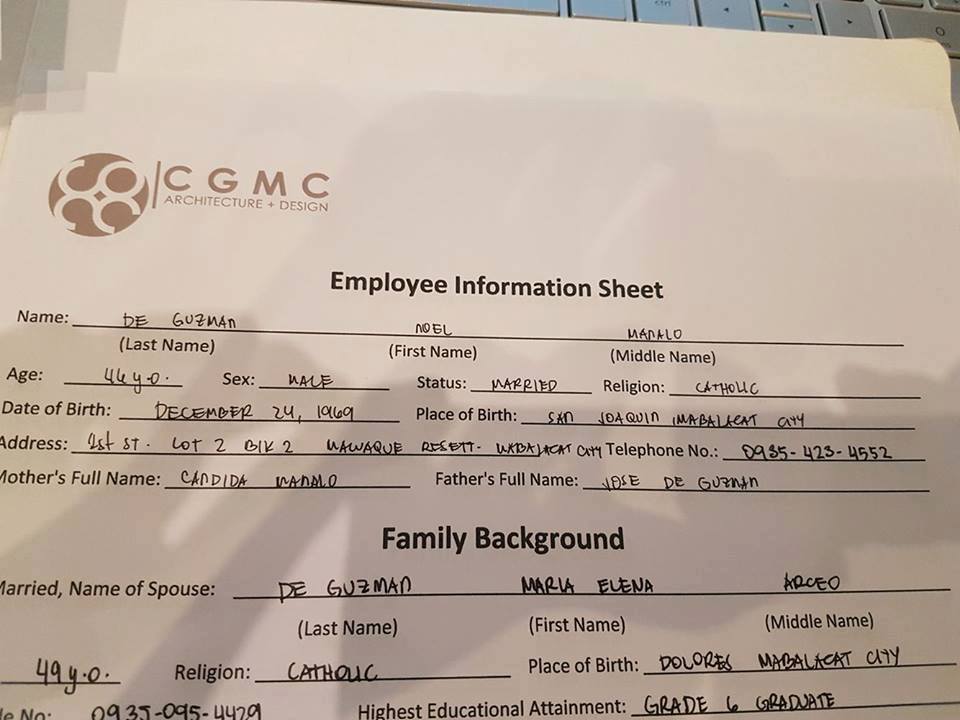 ctrl
CGMC
ARCHITECTURE + DESIGN
Employee Information Sheet
Name: DE GUZMAN NOEL MANALO
(Last Name) (First Name) (Middle Name)
Age: 46 y.o. Sex: MALE Status: MARRIED Religion: CATHOLIC
Date of Birth: DECEMBER 24, 1969 Place of Birth: SAN JOAQUIN MABALACAT CITY
Address: 1st ST. LOT 2 BLK 2 MAWAQUE RESETT. MABALACAT CITY Telephone No.: 0935-423-4552
Mother's Full Name: CANDIDA MANALO Father's Full Name: JOSE DE GUZMAN
Family Background
Married, Name of Spouse: DE GUZMAN MARIA ELENA ARCEO
(Last Name) (First Name) (Middle Name)
49 y.o. Religion: CATHOLIC Place of Birth: DOLORES MABALACAT CITY
le No: 0935-095-4429 Highest Educational Attainment: GRADE 6 GRADUATE